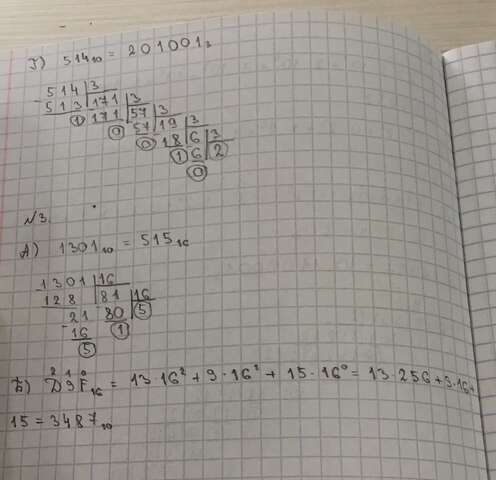 Г) 514₁₀ = 201001₃
514 | 3
513 | 171 | 3
1 171 | 57 | 3
0 57 | 19 | 3
0 18 | 6 | 3
1 6 | 2
0
№3.
А) 1301₁₀ = 515₁₆
1301 | 16
128 | 81 | 16
21 80 | 5
16 1
5
2 1 0
Б) D9F₁₆ = 13·16² + 9·16¹ + 15·16⁰ = 13·256 + 9·16 +
15 = 3487₁₀